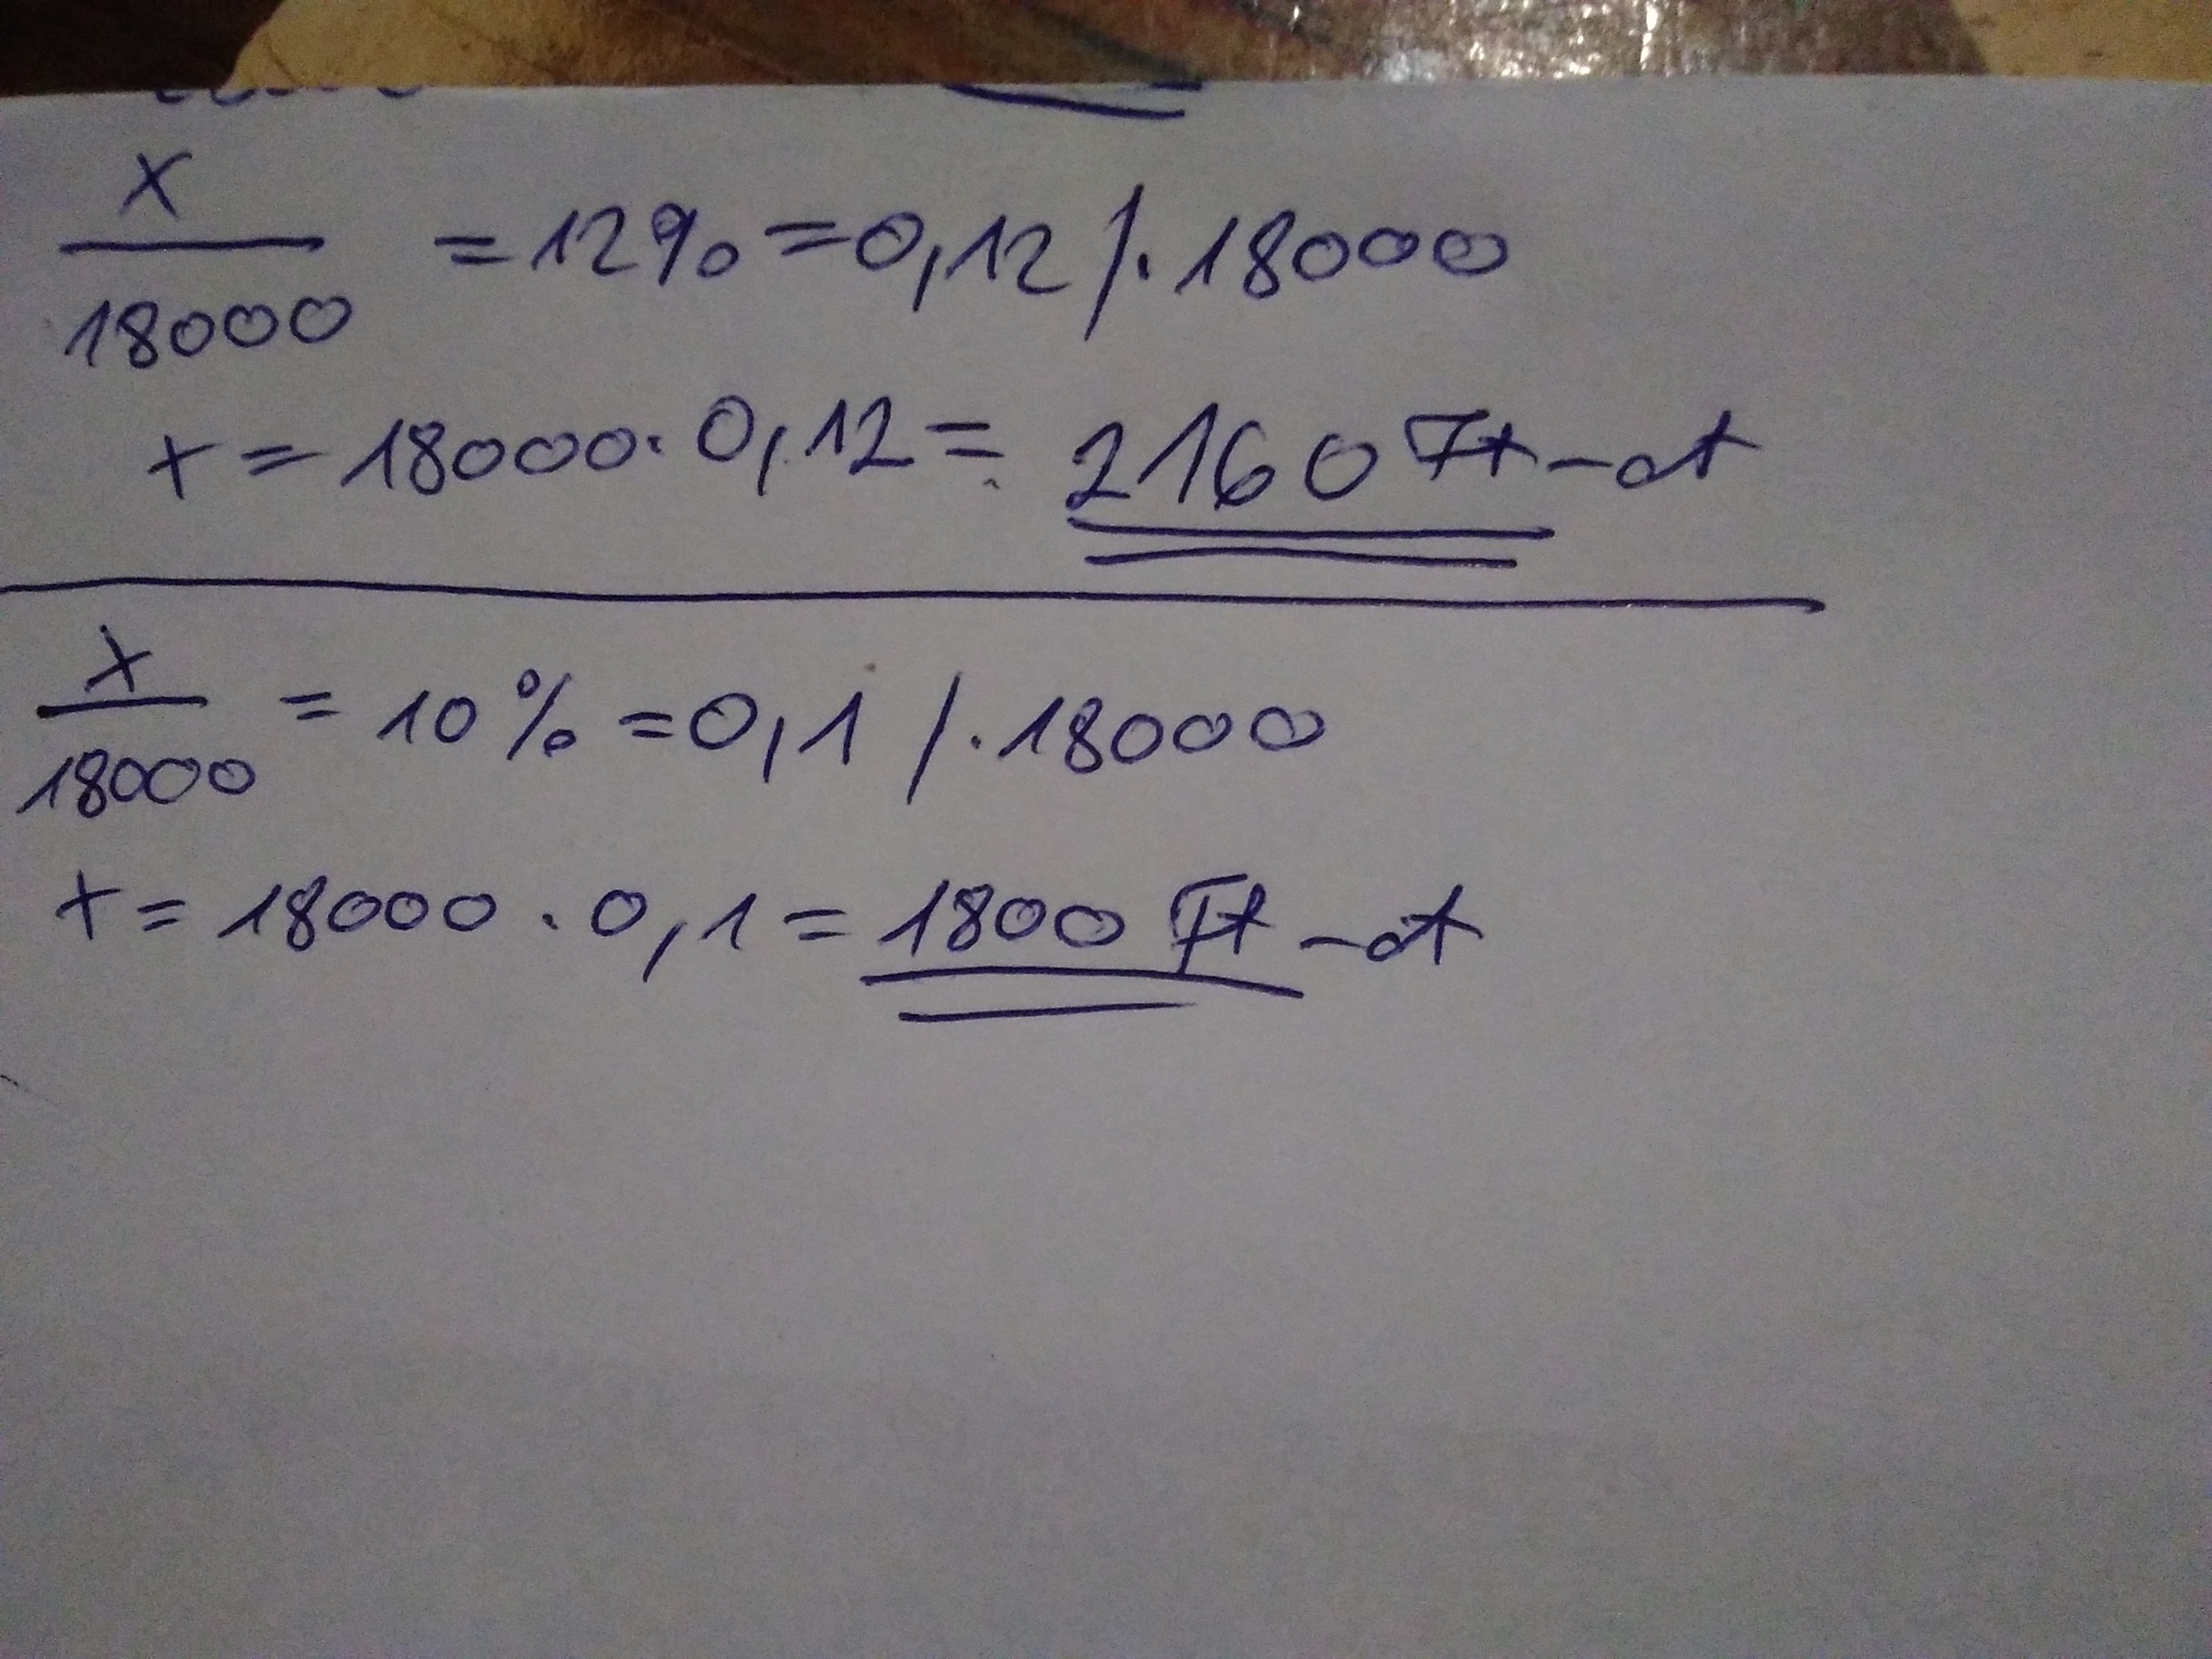 x
─── = 12% = 0,12 /. 18000
18000
x = 18000 · 0,12 = 2160 Ft-ot
x
─── = 10% = 0,1 /. 18000
18000
x = 18000 · 0,1 = 1800 Ft-ot